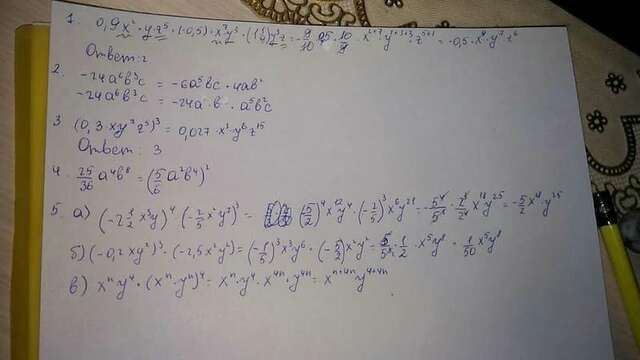 1. 0,9x²·yz⁵·(-0,5)·x⁷y³·(1 1/9)y³z = -9/10·0,5·10/9·x²⁺⁷·y¹⁺³⁺³·z⁵⁺¹ = -0,5·x⁹y⁷z⁶
Ответ: 2
2. -24a⁶b³c = -6a⁵bc·4ab²
-24a⁶b³c = -24a·b·a⁵b²c
3 (0,3xy²z⁵)³ = 0,027·x³·y⁶z¹⁵
Ответ: 3
4. 25/36 a⁴b⁸ = (5/6 a²b⁴)²
5. а) (-2 1/2 x³y)⁴·(-2/5 x²y⁷)³ = (5/2)⁴x¹²y⁴·(-2/5)³x⁶y²¹ = x¹⁸y²⁵ = -5/2 x¹⁸y²⁵
б) (-0,2xy²)³·(-2,5x²y²) = (-1/5)³x³y⁶·(-5/2)x²y² = ·1/2·x⁵y⁸ = 1/50 x⁵y⁸
в) xⁿy⁴·(xⁿ·yⁿ)⁴ = xⁿ·y⁴·x⁴ⁿ·y⁴ⁿ = xⁿ⁺⁴ⁿy⁴⁺⁴ⁿ